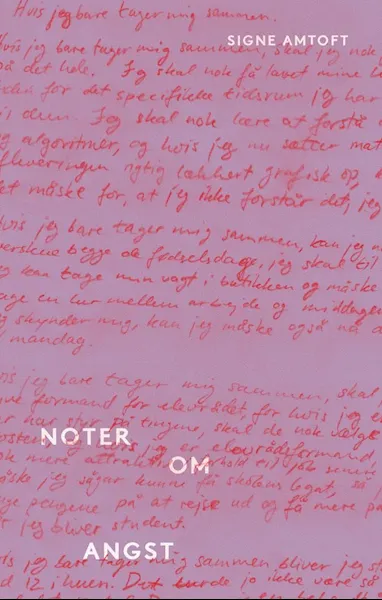 Hvis jeg bare tager mig sammen.
SIGNE AMTOFT
Hvis jeg bare tager mig sammen, skal jeg nok
på det hele. Jeg skal nok få lavet mine
inden for det specifikke tidsrum jeg har
Jeg skal nok lære at forstå
og algoritmer, og hvis jeg nu sætter mat
afleveringen rigtig lækkert grafisk op,
det måske for, at jeg ikke forstår det, jeg
Hvis jeg bare tager mig sammen, kan jeg
overskue begge de fødselsdage, jeg skal til
jeg kan tage min vagt i butikken og måske
tage en lur mellem arbejde og middagen
jeg skynder mig, kan jeg måske også nå
mandag.
Hvis jeg bare tager mig sammen, skal
formand for elevrådet, for hvis jeg
har styr på tingene, skal de nok vælge
NOTER
hvis jeg er elevrådsformand,
OM
mere attraktiv forhold til job senere
måske jeg sågar kunne få skolens legat, så
pengene på at rejse ud og få mere
jeg bliver student.
ANGST
Hvis jeg bare tager mig sammen bliver jeg
12 i huen. Det burde jo ikke være så